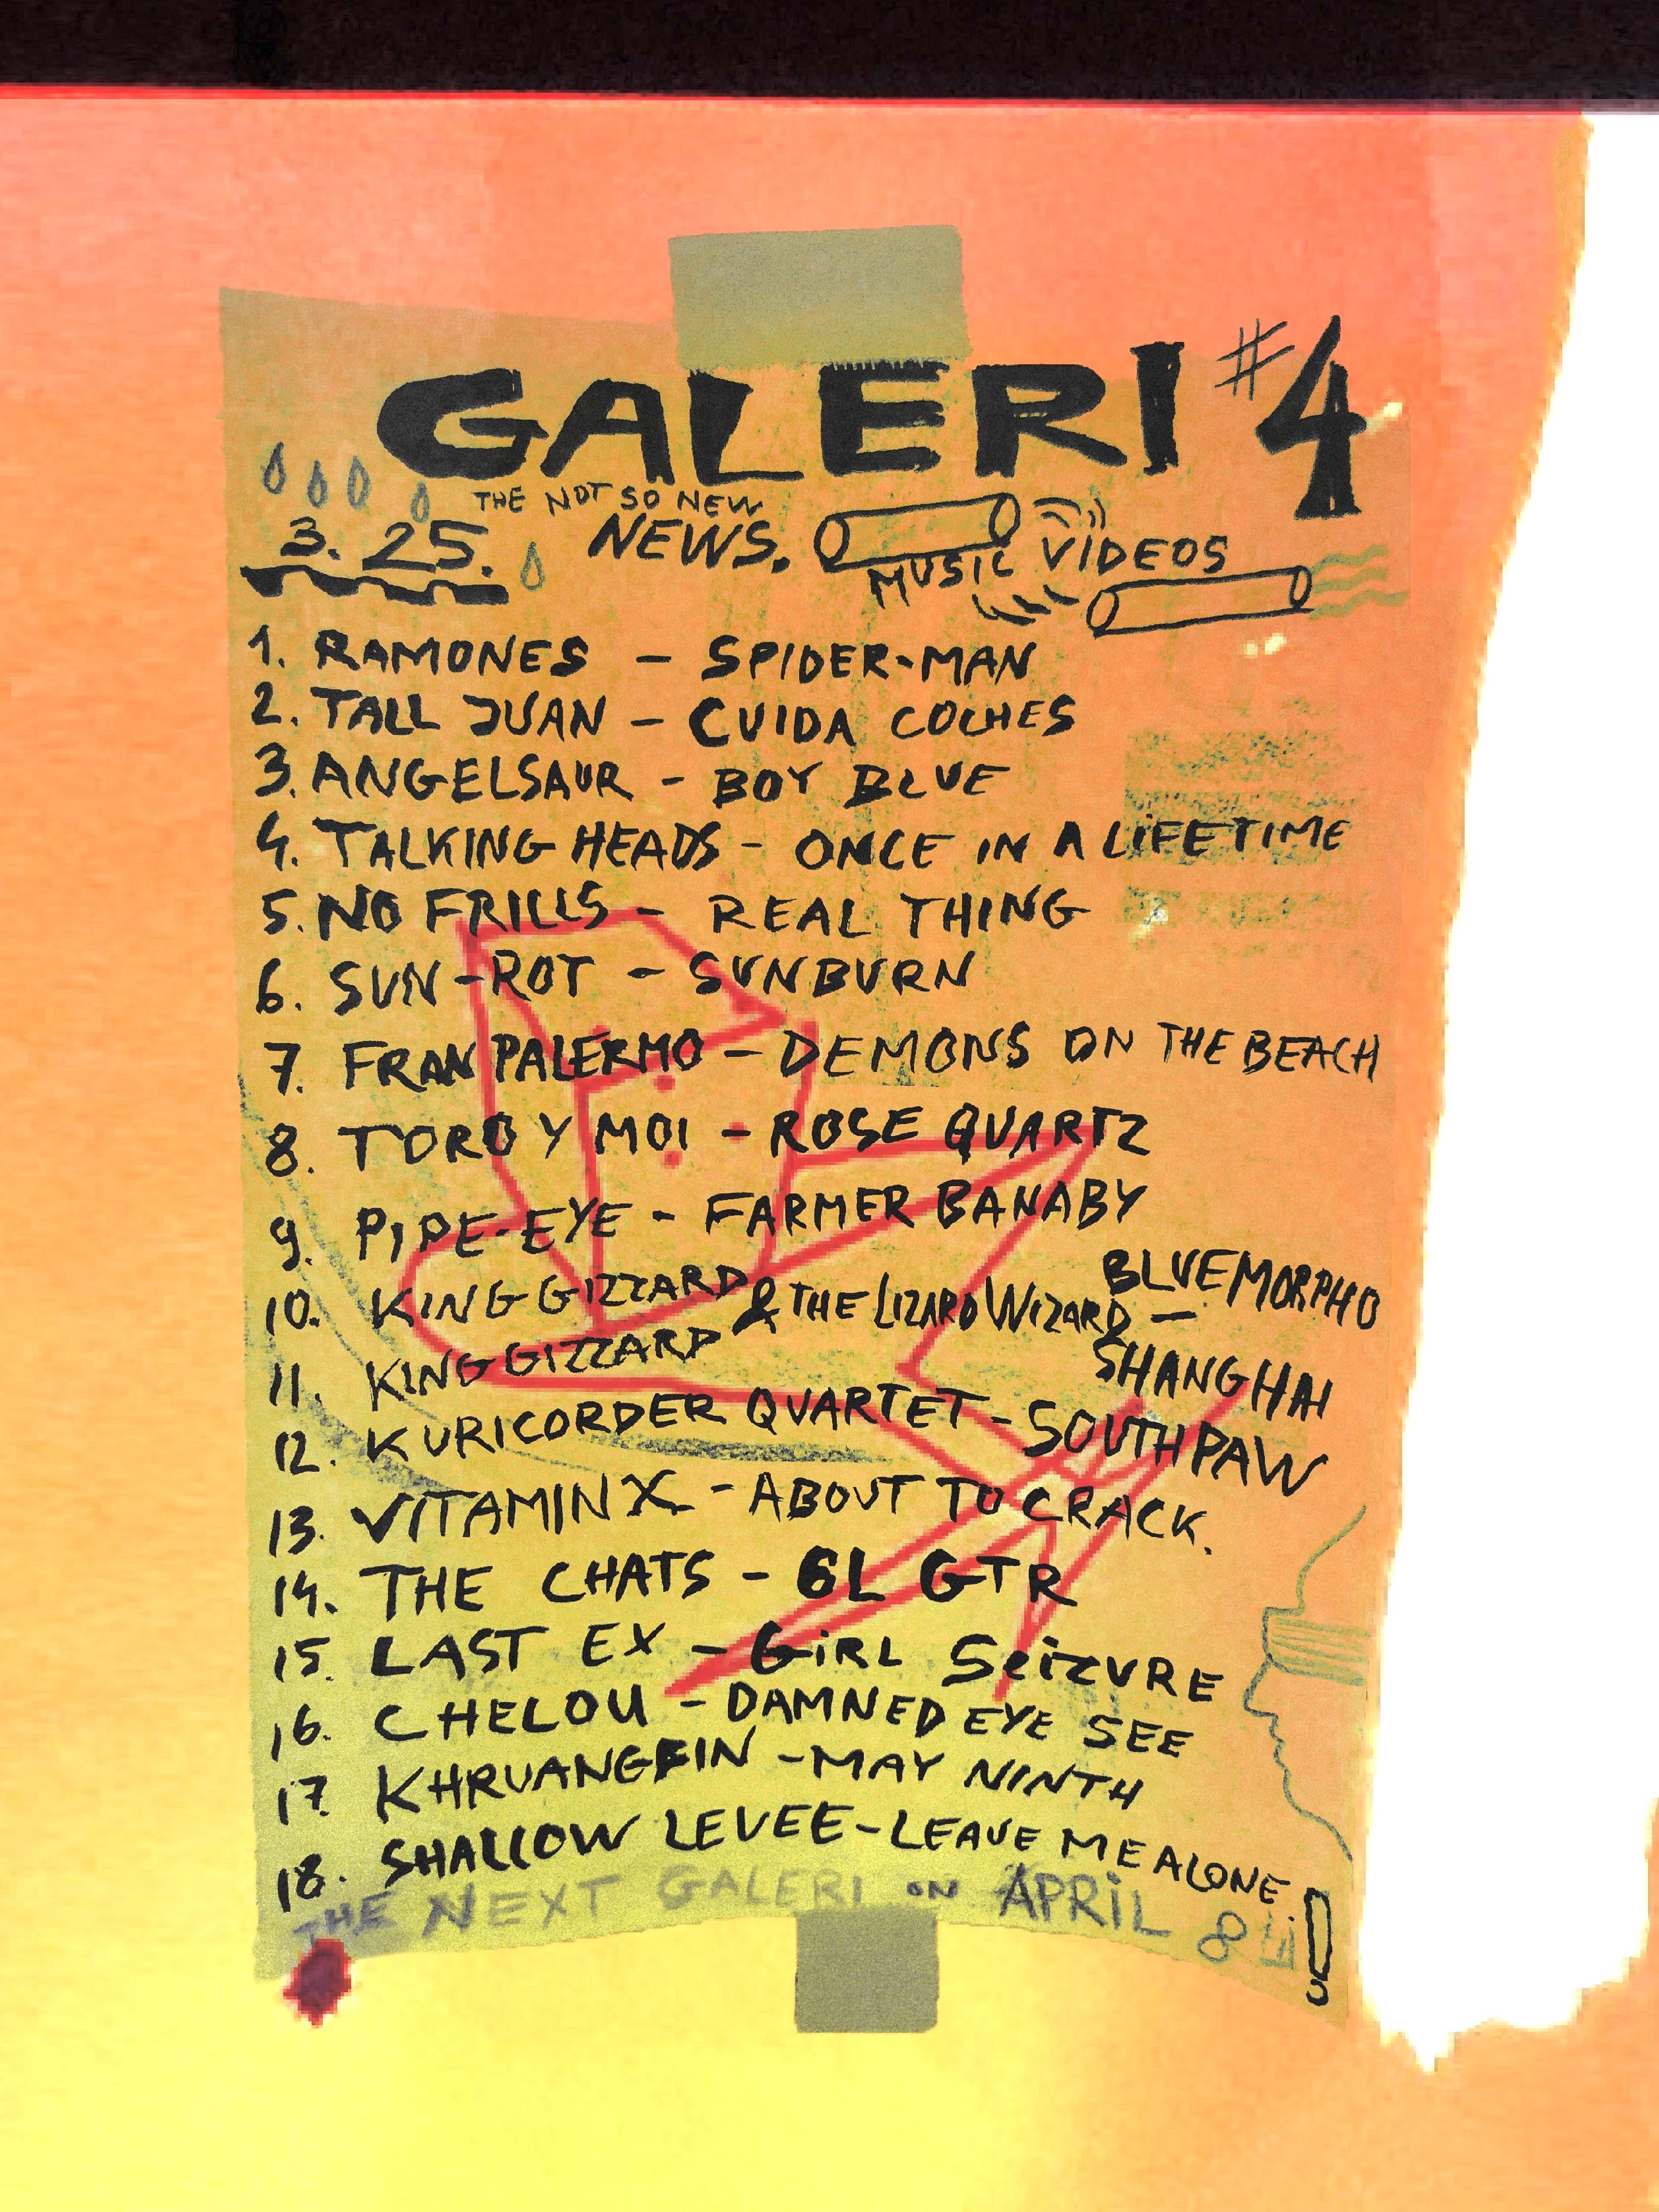 GALERI #4
THE NOT SO NEW
3. 25. NEWS.
MUSIC VIDEOS
1. RAMONES - SPIDER-MAN
2. TALL JUAN - CUIDA COCHES
3. ANGELSAUR - BOY BLUE
4. TALKING HEADS - ONCE IN A LIFETIME
5. NO FRILLS - REAL THING
6. SUN-ROT - SUNBURN
7. FRAN PALERMO - DEMONS ON THE BEACH
8. TORO Y MOI - ROSE QUARTZ
9. PIPE-EYE - FARMER BANABY
10. KING GIZZARD & THE LIZARD WIZARD - BLUE MORPHO
11. KING GIZZARD SHANGHAI
12. KURICORDER QUARTET - SOUTHPAW
13. VITAMIN X - ABOUT TO CRACK.
14. THE CHATS - 6L GTR
15. LAST EX - GiRL SeiZURE
16. CHELOU - DAMNED EYE SEE
17. KHRUANGBIN - MAY NINTH
18. SHALLOW LEVEE - LEAVE ME ALONE
THE NEXT GALERI ON APRiL 8 !